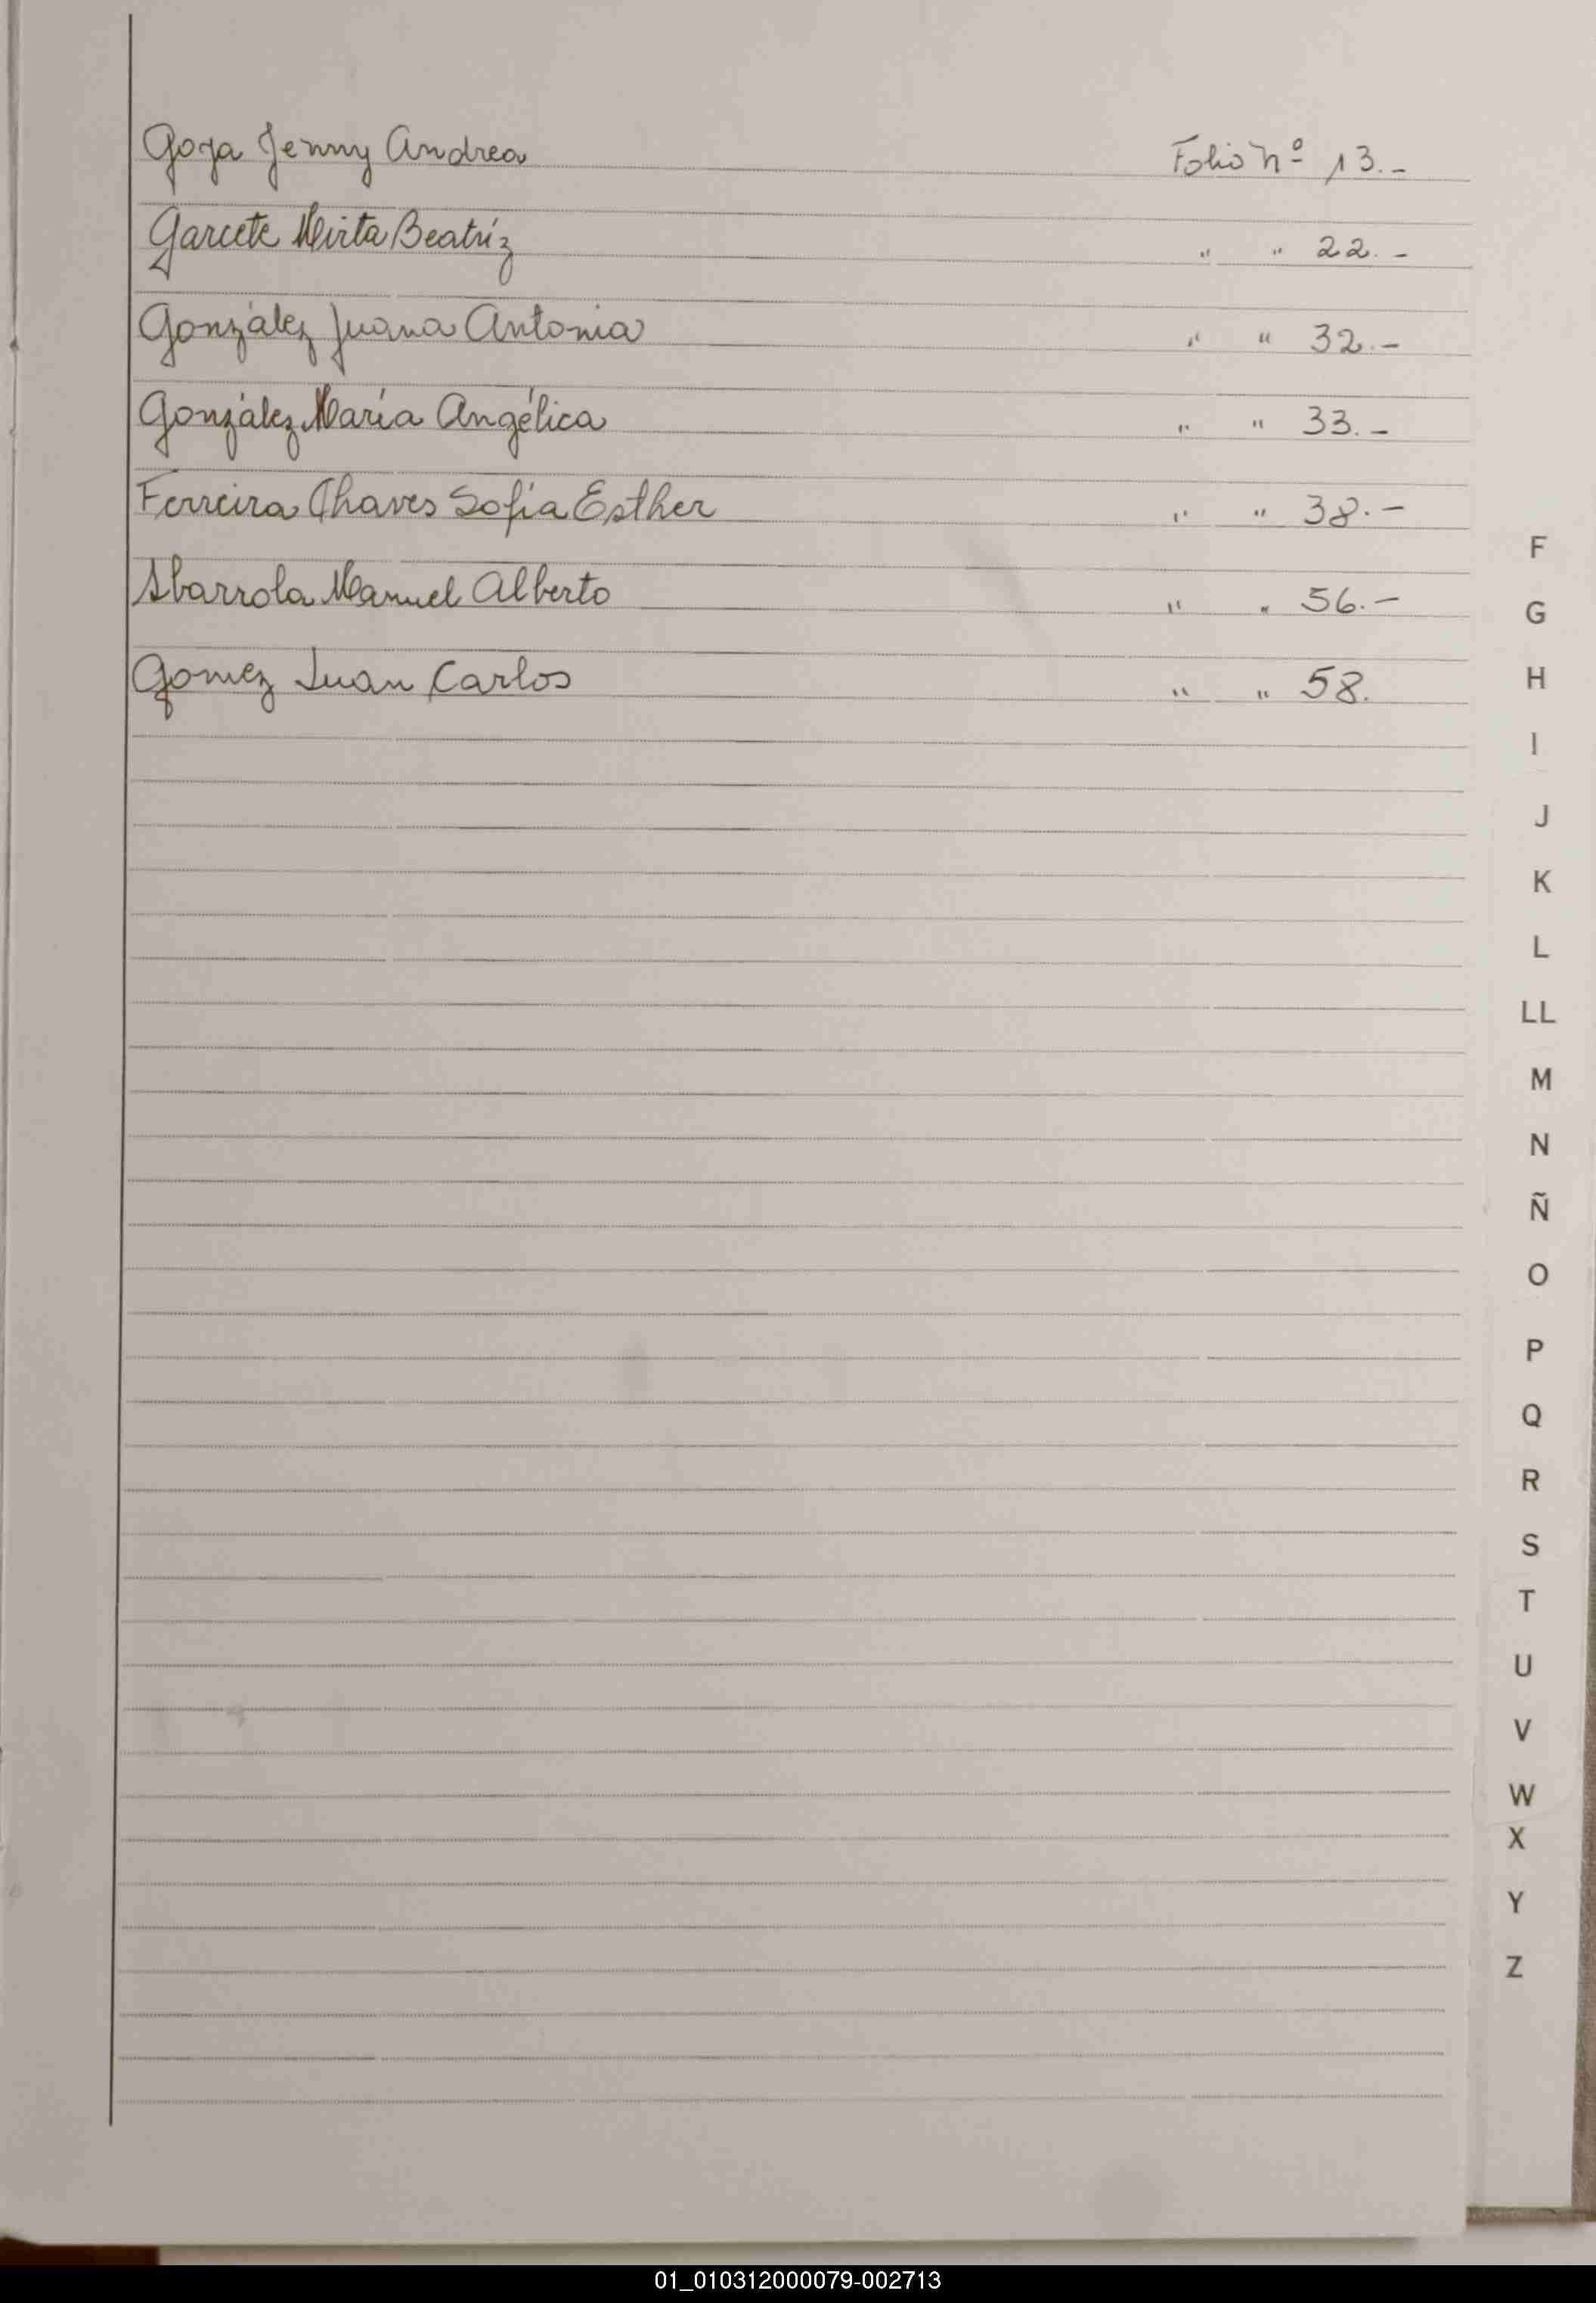 Goya Jenny Andrea Folio nº 13.-
Garcete Mirta Beatríz " " 22.-
González Juana Antonia " " 32.-
González María Angélica " " 33.-
Ferreira Chaves Sofía Esther " " 38.-
Ibarrola Manuel Alberto " " 56.-
Gomez Juan Carlos " " 58.
F
G
H
I
J
K
L
LL
M
N
Ñ
O
P
Q
R
S
T
U
V
W
X
Y
Z
01_010312000079-002713